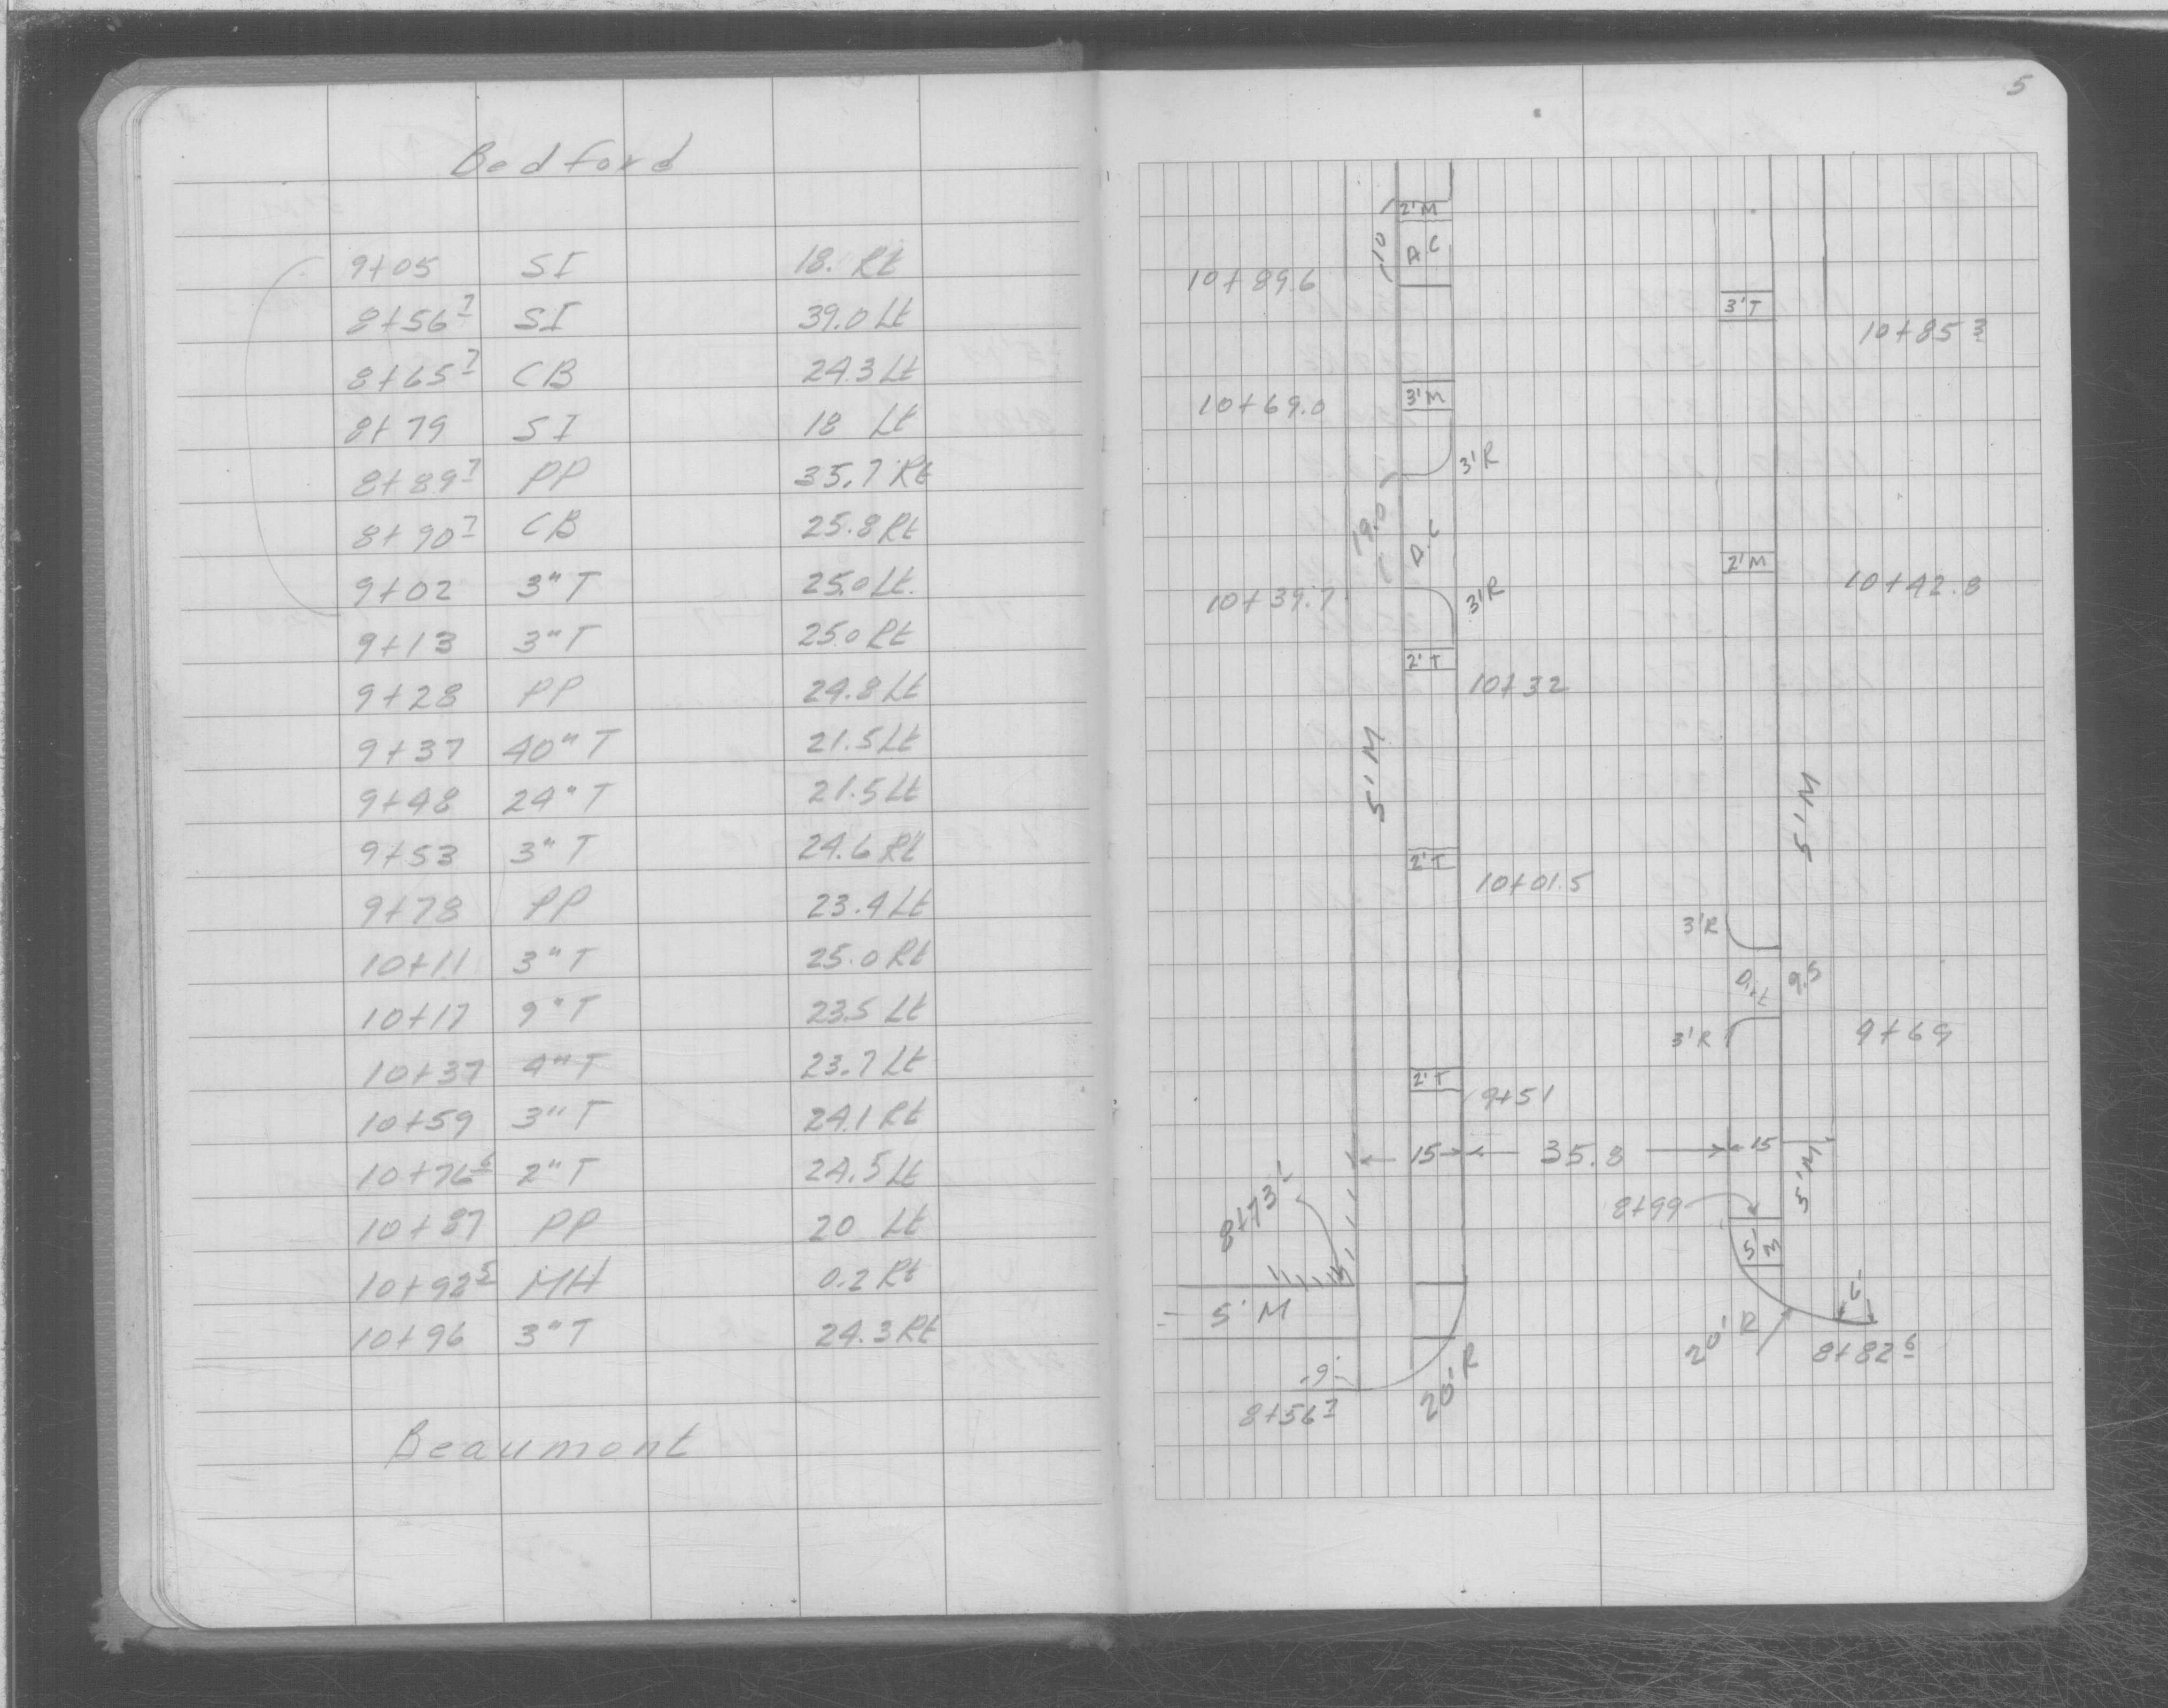 Bedford
9+05 SI 18. Rt
8+56 7 SI 39.0 Lt
8+65 7 CB 24.3 Lt
8+79 SI 18 Lt
8+89 7 PP 35.7 Rt
8+90 7 CB 25.8 Rt
9+02 3" T 25.0 Lt.
9+13 3" T 25.0 Rt
9+28 PP 24.8 Lt
9+37 40" T 21.5 Lt
9+48 24" T 21.5 Lt
9+53 3" T 24.6 Rt
9+78 PP 23.4 Lt
10+11 3" T 25.0 Rt
10+17 9" T 23.5 Lt
10+37 4" T 23.7 Lt
10+59 3" T 24.1 Rt
10+76 6 2" T 24.5 Lt
10+87 PP 20 Lt
10+92 5 MH 0.2 Rt
10+96 3" T 24.3 Rt
Beaumont
5
2' M
10
A.C
10+89.6
3' T
10+85 3
3' M
10+69.0
3' R
19.0
A.C
2' M
10+42.8
10+39.7
3' R
2' T
10+32
5' M
5' M
2' T
10+01.5
3' R
Dirt
9.5
3' R
9+69
2' T
9+51
15
35.8
15
5' M
8+73
8+99
5' M
5' M
6'
20' R
8+82 6
9'
20' R
8+56 7